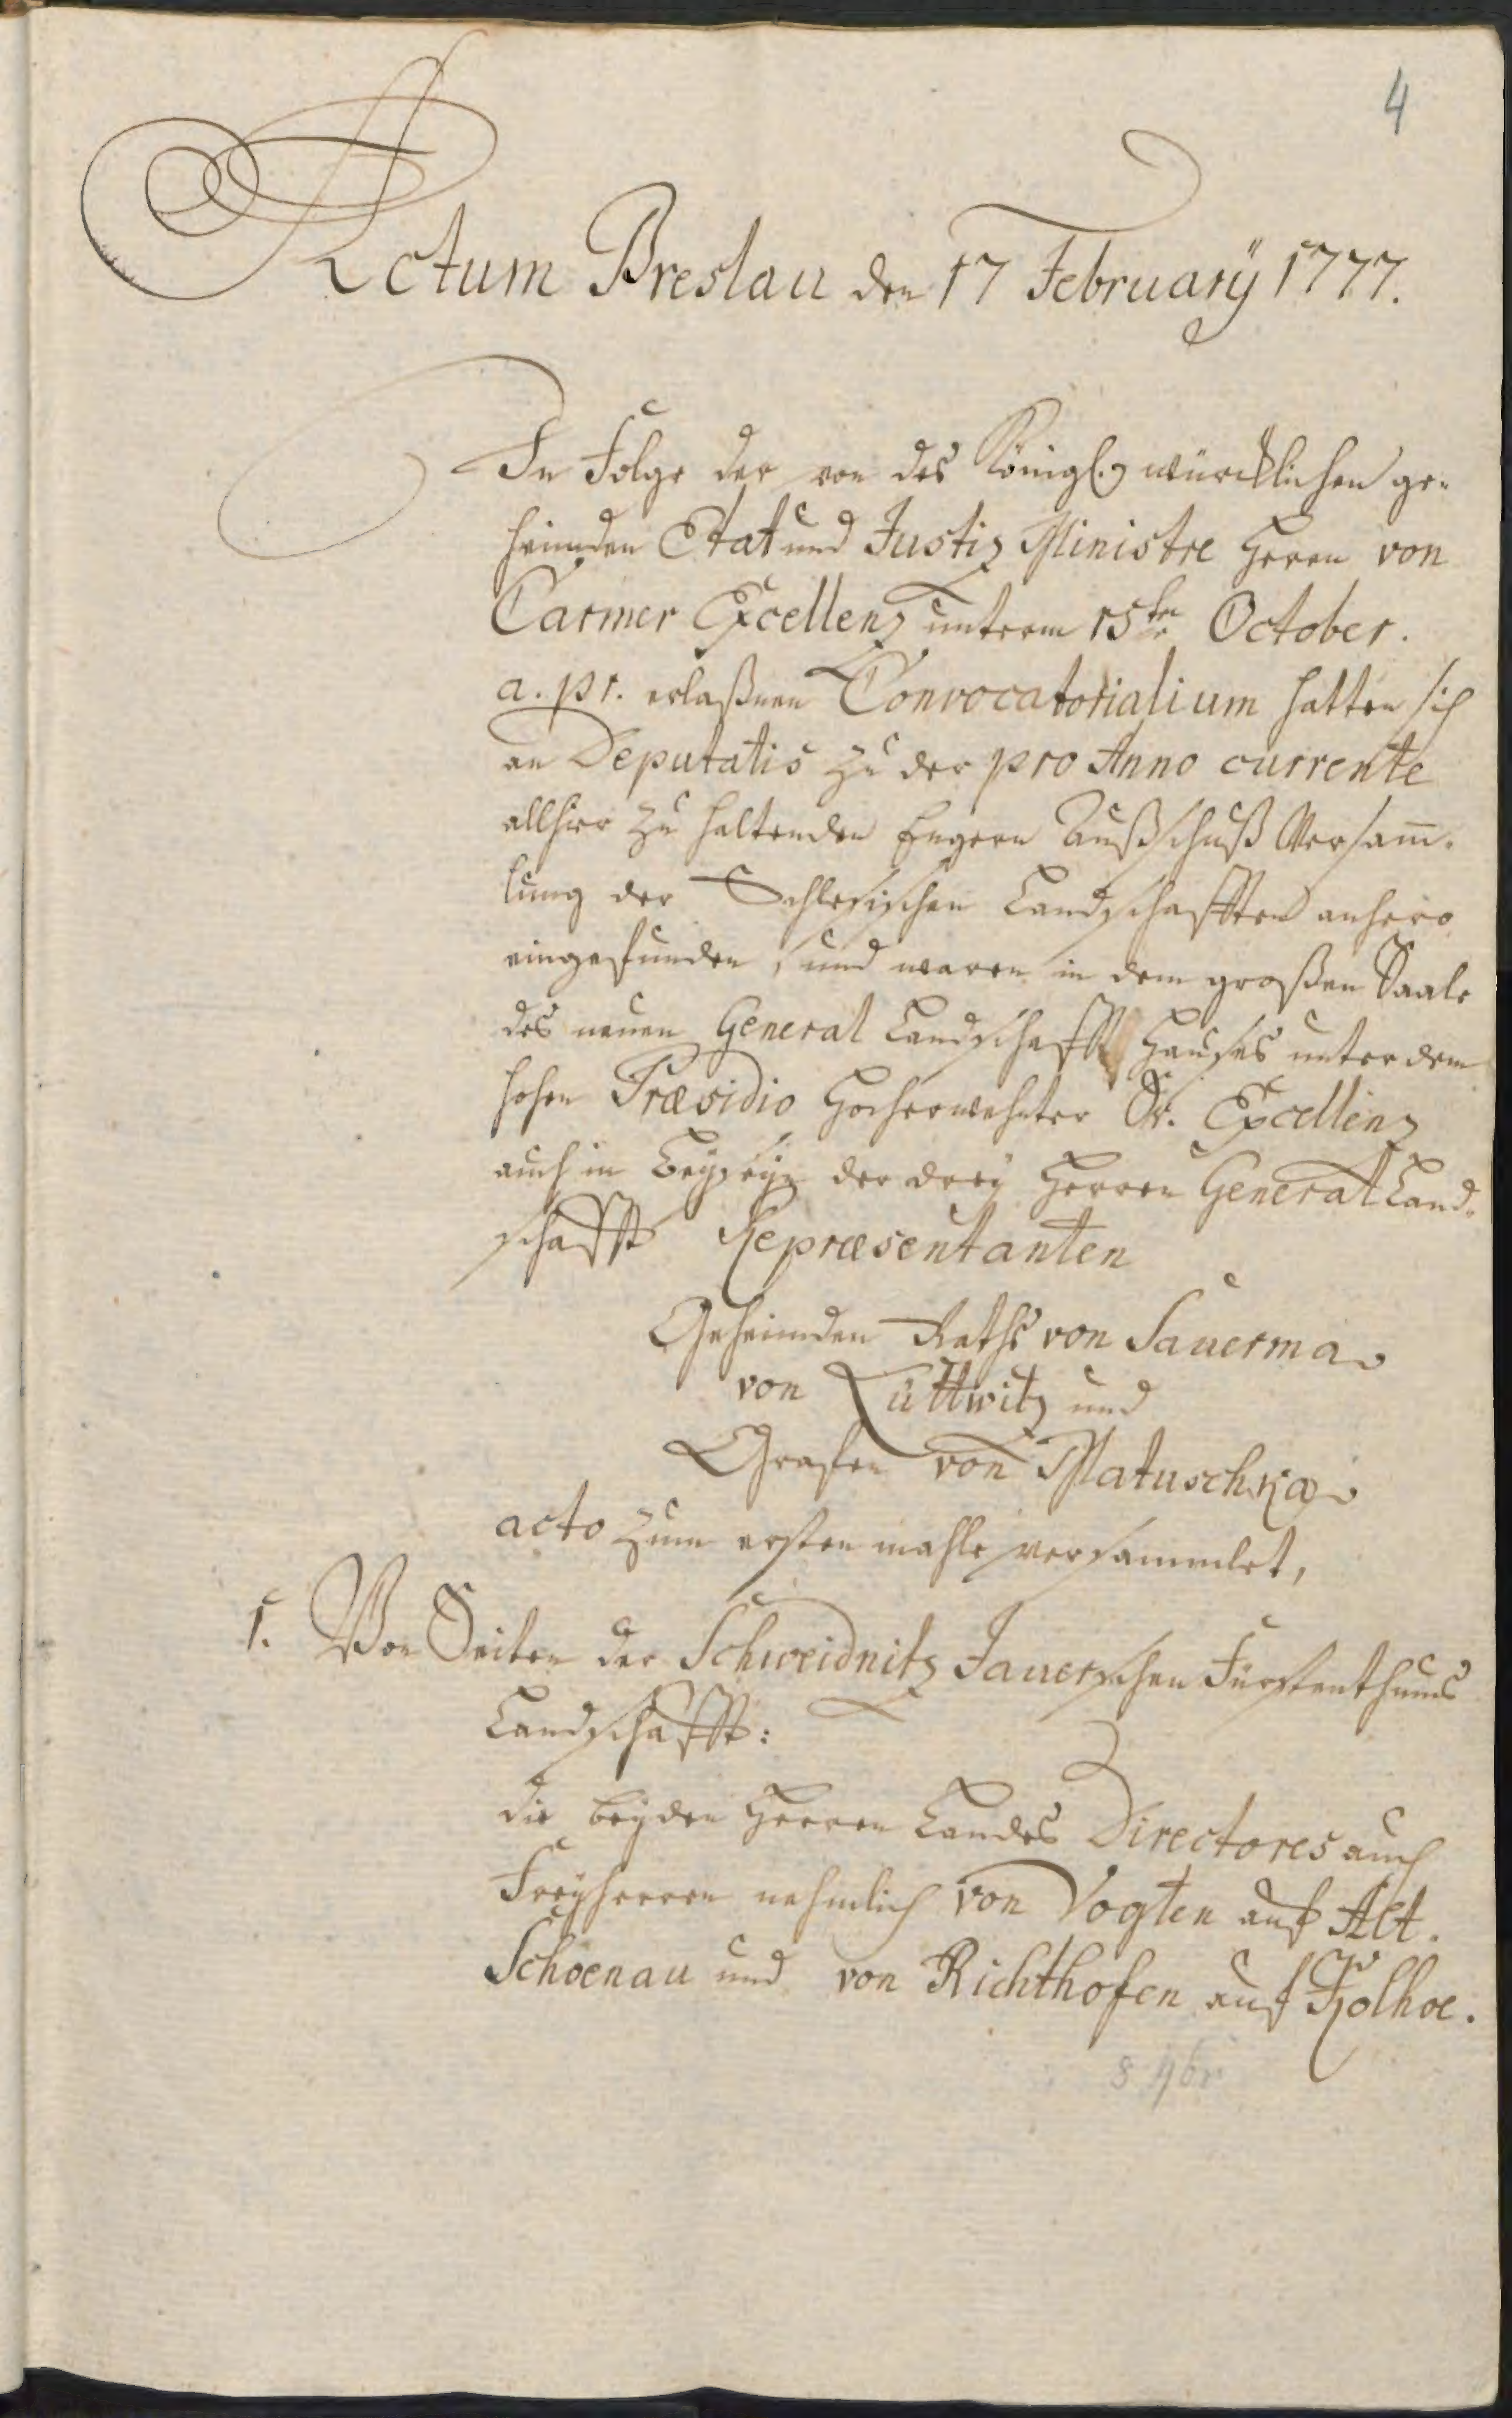 4
Actum Breslau den 17 February 1777.
In Folge der von des Königl. würcklichen ge-
heimden Etat und Justiz Ministre Herrn von
Carmer Excellenz unterm 15ten October.
a. pr. erlaßnen Convocatorialium hatten sich
an Deputatis zu der pro Anno currente
allhier zu haltenden Engern Außschuß Versam̅-
lung der Schlesischen Landschafften anhero
eingefunden, und waren in dem großen Saale
des neuen General Landschafft Hauses unter dem
hohen Præsidio Hocherwehnter Sr. Excellenz
auch in Beyseyn der drey Herren General Land-
schaffts Repræsentanten
Geheimden Raths von Sauerma
von Lüttwitz und
Grafen von Matuschka
acto zum ersten mahle versammlet,
1. Von Seiten der Schweidnitz Jauerschen Fürstenthums
Landschafft:
die beyden Herren Landes Directores auch
Freyherren nehmlich von Vogten auf Alt-
Schoenau und von Richthofen auf Kolhoe.